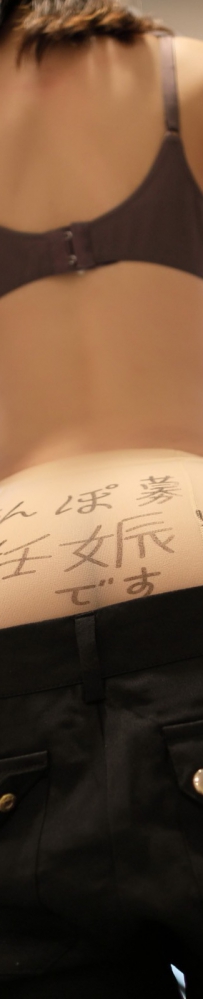 んぽ募
任娠
です